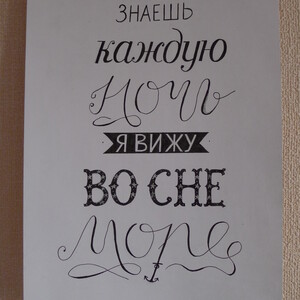 ЗНАЕШЬ
каждую
Ночь
Я ВИЖУ
ВО СНЕ
Море